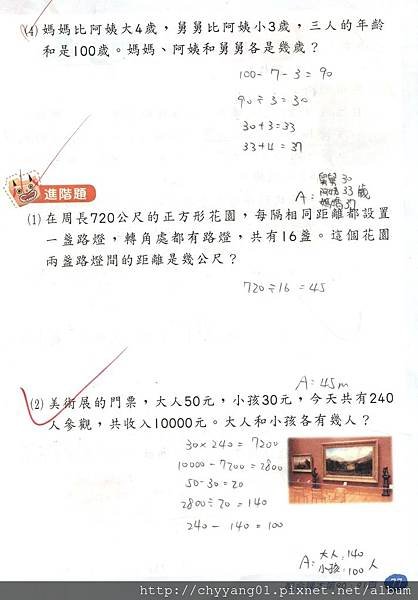 (4) 媽媽比阿姨大4歲，舅舅比阿姨小3歲，三人的年齡
和是100歲。媽媽、阿姨和舅舅各是幾歲？
100-7-3=90
90÷3=30
30+3=33
33+4=37
舅舅30
A：阿姨33歲
媽媽37
進階題
(1) 在周長720公尺的正方形花園，每隔相同距離都設置
一盞路燈，轉角處都有路燈，共有16盞。這個花園
兩盞路燈間的距離是幾公尺？
720÷16=45
A：45m
(2) 美術展的門票，大人50元，小孩30元，今天共有240
人參觀，共收入10000元。大人和小孩各有幾人？
30×240=7200
10000-7200=2800
50-30=20
2800÷20=140
240-140=100
A：大人：140
小孩：100人
77
http://chyyang01.pixnet.net/album